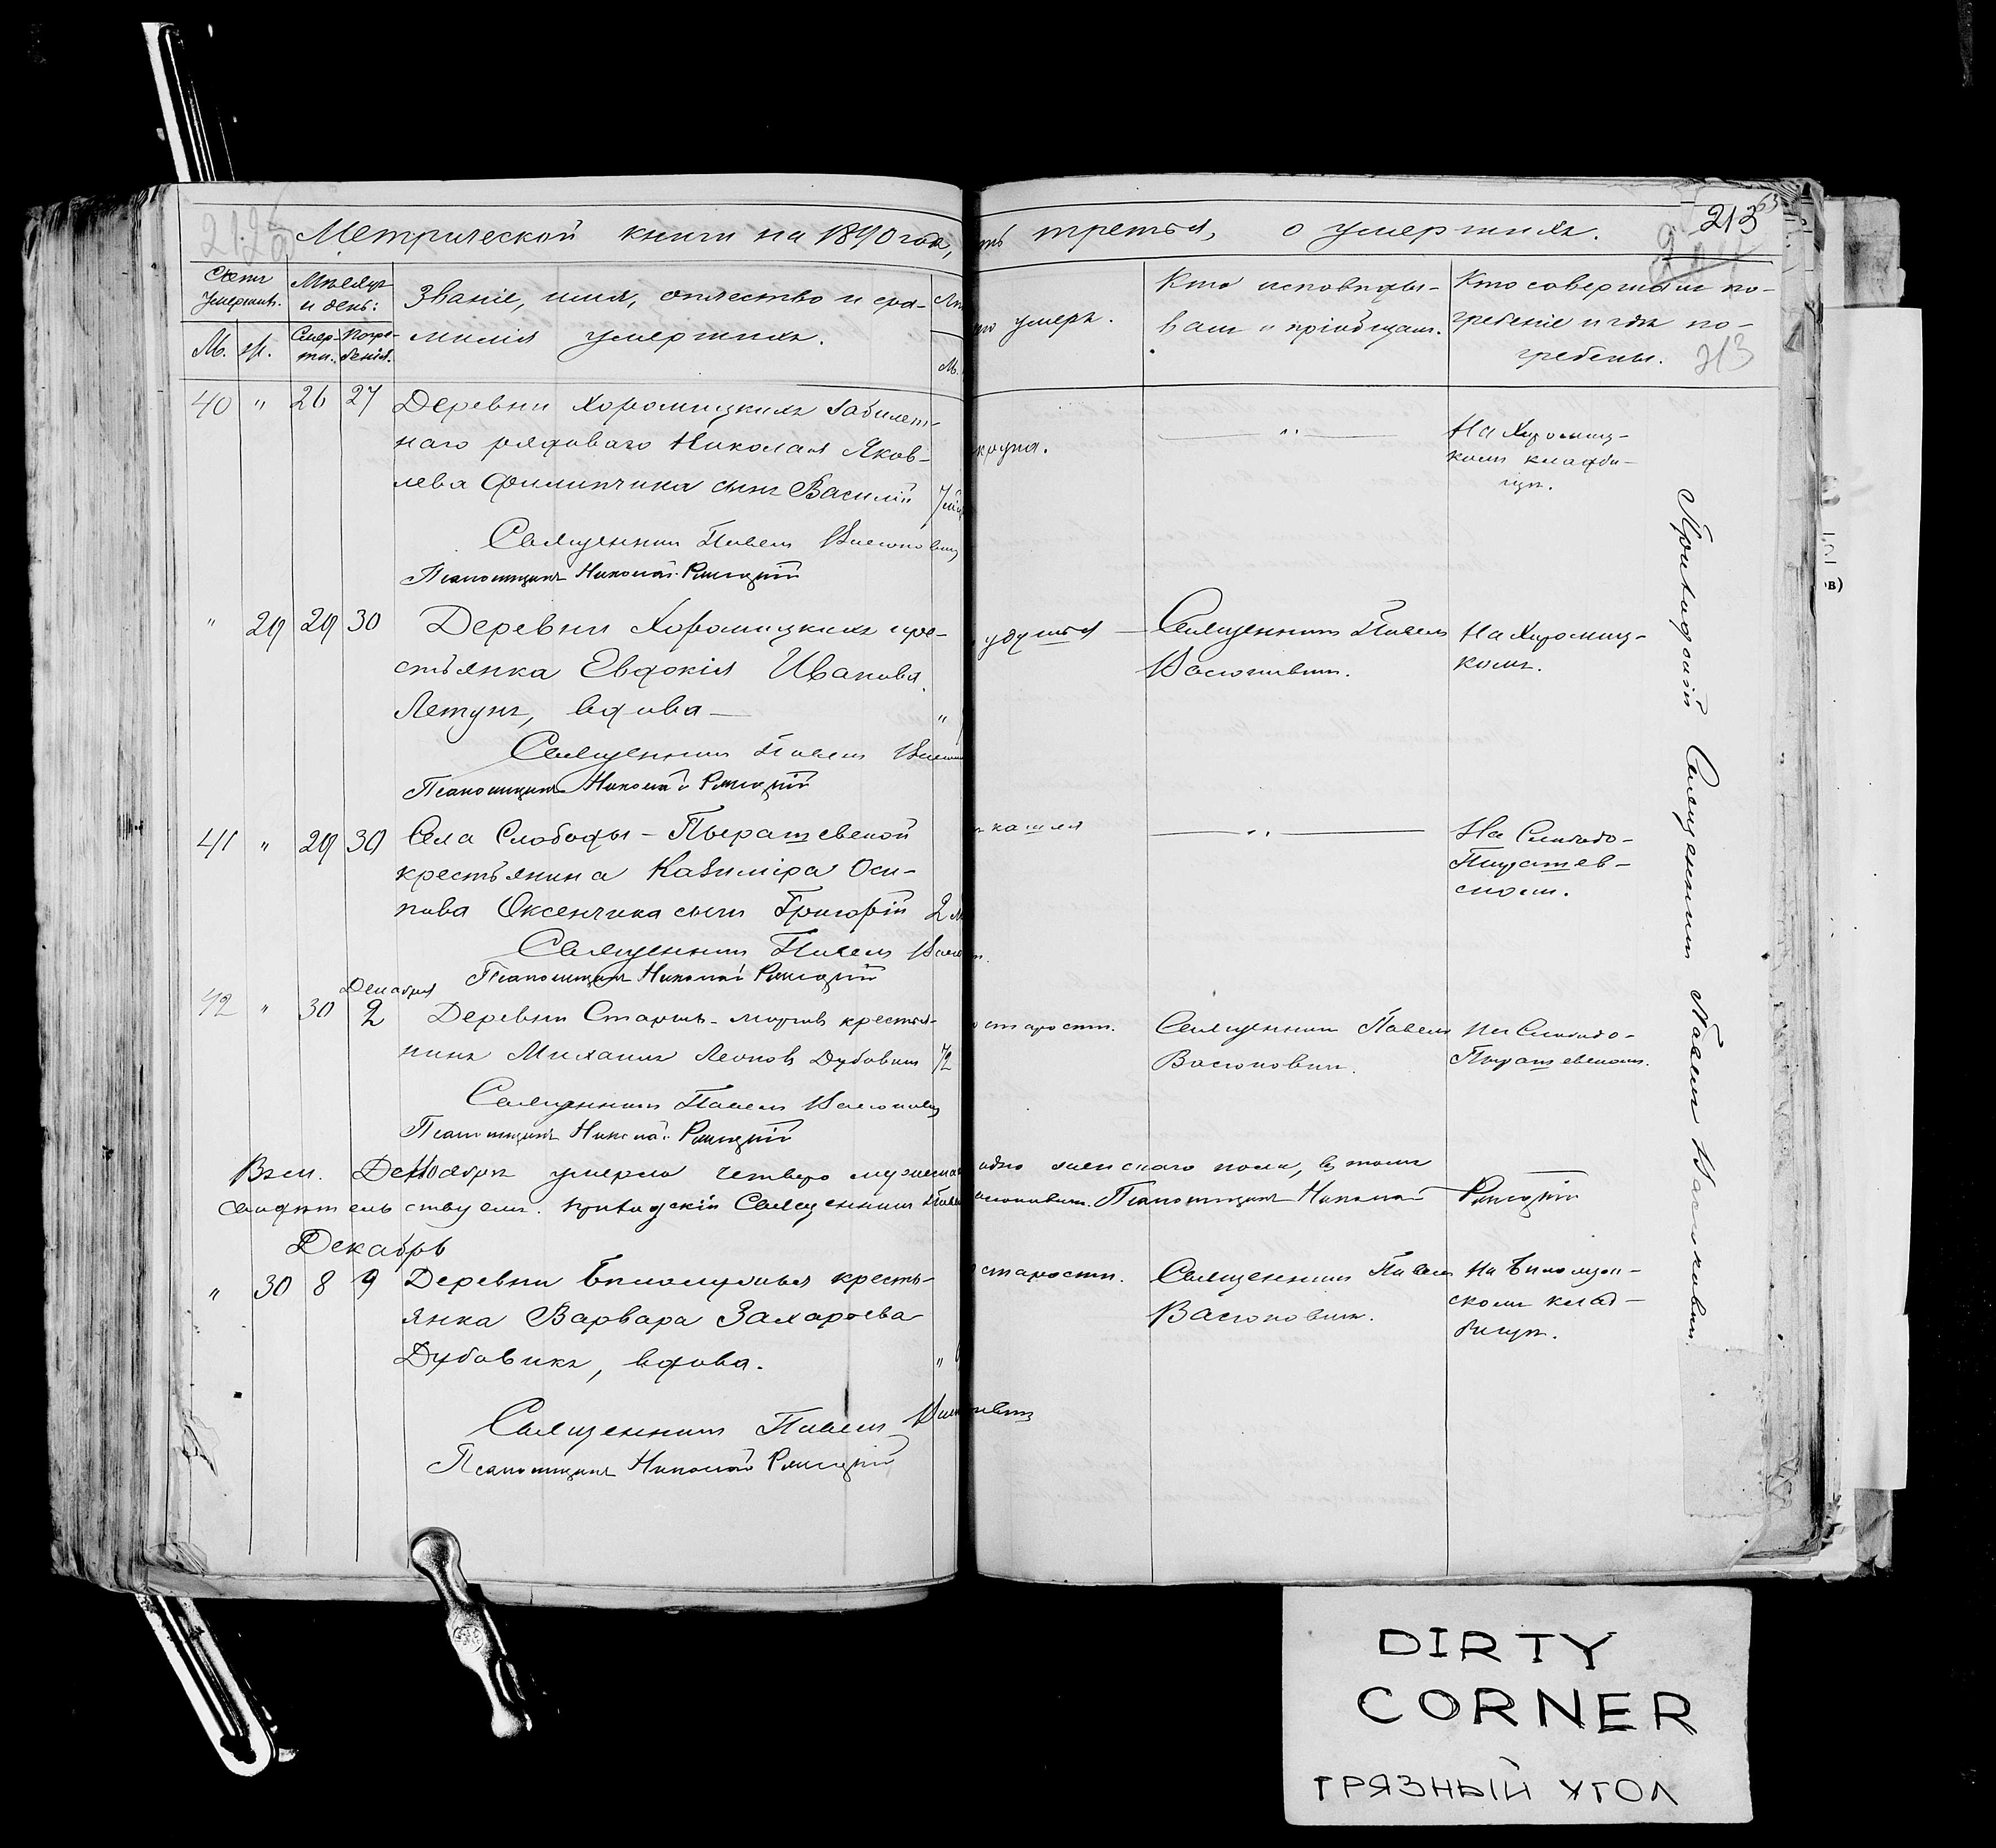 Метрической книги на 1890 года,
ть третья, о умершихъ.
213
Счетъ умершихъ.
Мѣсяцъ и день:
Званіе, имя, отчество и фа-
милія умершихъ.
М. ж.
Смер-
ти.
Погре-
бенія.
М.
его умеръ.
Кто исповѣды-
валъ и пріобщалъ.
Кто совершалъ по-
гребеніе и гдѣ по-
гребены.
213
40 " 26 27 Деревни Хоромицкихъ забилет-
наго рядоваго Николая Яков-
лева Филипчика сынъ Василій
Священникъ Павелъ Васюковичъ
Псаломщикъ Николай
"
На Хоромиц-
комъ кладби-
щѣ.
" 29 29 30 Деревни Хоромицкихъ кре-
стьянка Евдокія Иванова
Летунъ, вдова "
Священникъ Павелъ
Псаломщикъ Николай
удушья
Священникъ Павелъ
Васюковичъ.
На Хоромиц-
комъ.
41 " 29 30 Села Слободы-Пырашевской
крестьянина Казиміра Оси-
пова Оксенчика сынъ Григорій 2
Священникъ Павелъ
Псаломщикъ Николай
кашля
"
На Слободо-
Пырашев-
скомъ.
Декабря
42 " 30 2 Деревни Старины крестья-
нинъ Михаилъ Леоновъ Дубовикъ 72
Священникъ Павелъ Васюковичъ
Псаломщикъ Николай
старости.
Священникъ Павелъ
Васюковичъ.
На Слободо-
Пырашевскомъ.
Въ м. Ноябрѣ умерло четверо мужескаго одно женскаго пола, въ томъ
свидѣтельствуемъ. Приходскій Священникъ Павелъ Васюковичъ. Псаломщикъ Николай
Декабрь
" 30 8 9 Деревни кресть-
янка Варвара Захарьева
Дубовикъ, вдова. "
Священникъ Павелъ Васюковичъ
Псаломщикъ Николай
старости.
Священникъ Павелъ
Васюковичъ.
На
скомъ клад-
бищѣ.
Приходскій Священникъ Павелъ Васюковичъ.
в)
DIRTY
CORNER
ГРЯЗНЫЙ УГОЛ